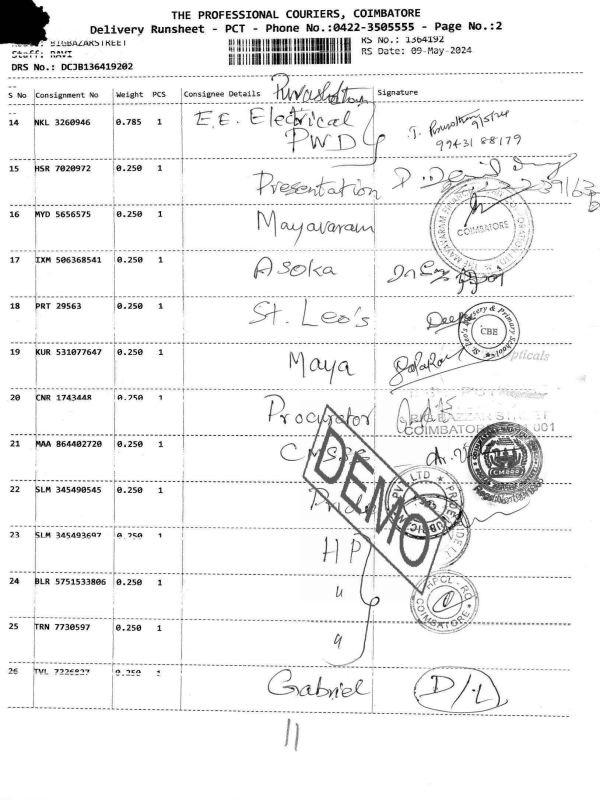 THE PROFESSIONAL COURIERS, COIMBATORE
Delivery Runsheet - PCT - Phone No.:0422-3505555 - Page No.:2
BIGBAZARSTREET RS No.: 1364192
Staff: RAVI RS Date: 09-May-2024
DRS No.: DCJB136419202
S No Consignment No Weight PCS Consignee Details Signature
14 NKL 3260946 0.785 1 E.E. Electrical
PWD
9/5/24
99431 88179
15 HSR 7020972 0.250 1 Presentation
16 MYD 5656575 0.250 1 Mayavaram
COIMBATORE
17 IXM 506368541 0.250 1 Asoka
18 PRT 29563 0.250 1 St. Leo's
St. Leo's Nursery & Primary School
CBE
19 KUR 531077647 0.250 1 Maya
pticals
20 CNR 1743448 0.250 1 Procurator
BIG BAZZAR STREET
COIMBATORE 001
21 MAA 864402720 0.250 1 CMSSB
CMSSB
DEMO
22 SLM 345490545 0.250 1 Pride
23 SLM 345493697 0.250 1 HP
24 BLR 5751533806 0.250 1 "
HPCL - RO
COIMBATORE
25 TRN 7730597 0.250 1 "
26 TVL 7226827 0.250 1 Gabriel D/L
11